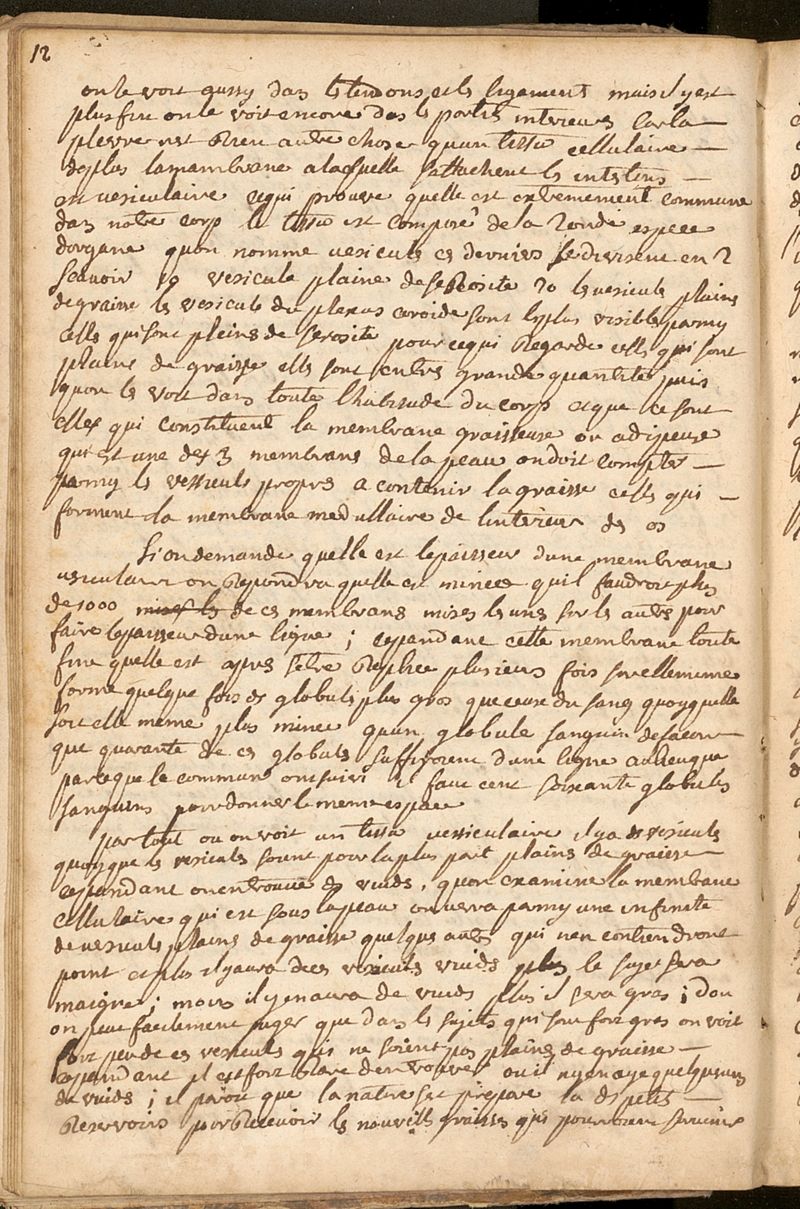 12
on le voit aussy dans les tendons et les ligaments mais il y est
plus fin on le voit encore das les parties interieures car la
plevre nest Rien autre chose quun tissu cellulaire
deplus lamambrane a laquelle sattachent les intestins
est vesiculaire cequi prouve quelle est extremement commune
dans notre corp le tissu est composé de la 2onde espece
dorgane quon nomme vesicules ces derniers se divisent en 2
scavoir 10 vesicule plaine de seRosite 20 les vesicules plaines
de graine les vesicules du plexus coroide sont les plus visibles parmy
celles qui sont pleines de serosite pour cequi Regarde celles qui sont
plaines de graisse elles sont entres grande quantite puis
quon les voit dans toute lhabitude du corp et que ce sont
elles qui constituent la membrane graisseuse ou adipeuse
qui est une des 3 membranes de la peau on doit compter
parmy les vessicules propres a contenir la graisse celles qui
forment la membrane medullaire de linterieur des os
Si on demande quelle est lepaisseur dune membrane
vesiculaire on Repondra quelle est mincee quil faudroit plus
de 1000 de ces membranes mises les unes sur les autres pour
faire lepaisseur dune ligne ; cependant cette membrane toute
fine quelle est apres setre Repliee plusieurs fois surellememe
forme quelque fois des globules plus gros que ceux du sang quoyquelle
soit elle meme plus mince quun globule sanguin defacon
que quarante de ces globules suffiroient dune ligne aulieuque
parceque le commun ont suivi il faut cent soixante globules
sanguins pour donner le meme espace
par tout ou on voit un tissu vessiculaire il ya des vesicules
quoyque les vesicules soient pour la plus part plaines de graisse
cependant on en trouve de vuides, quon examine la membane
cellulaire qui est sous la peau on verra parmy une infinite
de vesicules plaines de graisse quelques autres qui nen contiendront
point et plus il y aura de ces vesicules vuides plus le sujet sera
maigre ; moins il y en aura de vuides plus il sera gras ; dou
on peut facilement juger que dans les sujets qui sont fort gras on voit
fort peu de ces vesicules qui ne soient pas plaines de graisse
cependant il est fort Rare den trouver ou il ny en aye quelques unes
de vuides ; il paroit que la nature set prepare la des petits
Reservoirs pour Recevoir les nouvelles graisses qui pourroient survenir